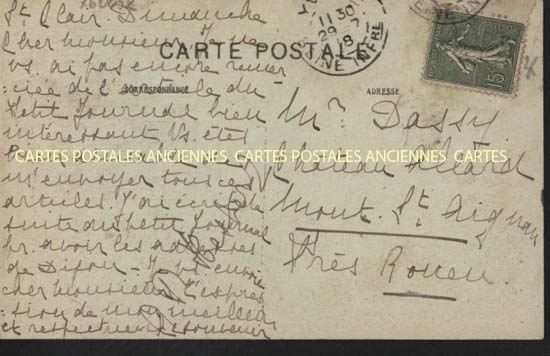 St Clair. Dimanche
Cher Monsieur. Je ne
vs ai pas encore remer
-ciée de l'article du
Petit Journal bien
intéressant Vs êtes
m'envoyer tous ces
articles. J'ai écrit de
suite au petit Journal
pr. avoir les adresses
de Dijon. Je vs envoie
cher monsieur l'expres
-sion de mon meilleur
et respectueux souvenir
CARTE POSTALE
CORRESPONDANCE
ADRESSE
11 30
29 7
18
INE INFRE
15
Mr Dassy
Château
Mont St Aignan
Près Rouen.
CARTES POSTALES ANCIENNES CARTES POSTALES ANCIENNES CARTES